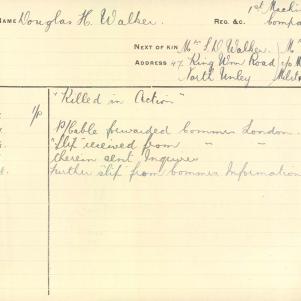 1st Machin
NAME Douglas H. Walker. REG. &C. Compa
NEXT OF KIN Mrs L. D. Walker.
ADDRESS 47 King Wm Road c/o M
North Unley Milit
"Killed in Action"
P/Cable forwarded Commer London
"Slip" received from " "
therein sent Inquires
Further slip from Commer Information